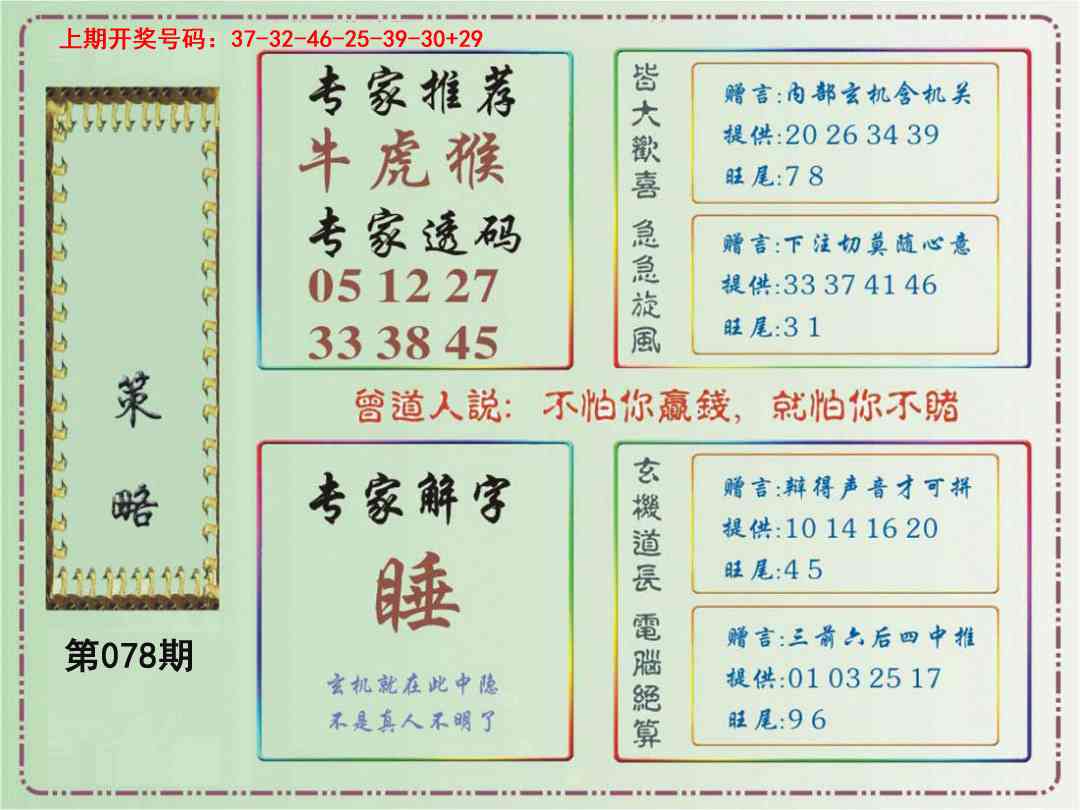 上期开奖号码：37-32-46-25-39-30+29
策略
第078期
专家推荐
牛虎猴
专家透码
05 12 27
33 38 45
皆大歡喜
赠言:内部玄机含机关
提供:20 26 34 39
旺尾:7 8
急急旋风
赠言:下注切莫随心意
提供:33 37 41 46
旺尾:3 1
曾道人説：不怕你赢錢，就怕你不賭
专家解字
睡
玄机就在此中隐
不是真人不明了
玄機道長
赠言:辩得声音才可拼
提供:10 14 16 20
旺尾:4 5
電腦絕算
赠言:三前六后四中推
提供:01 03 25 17
旺尾:9 6